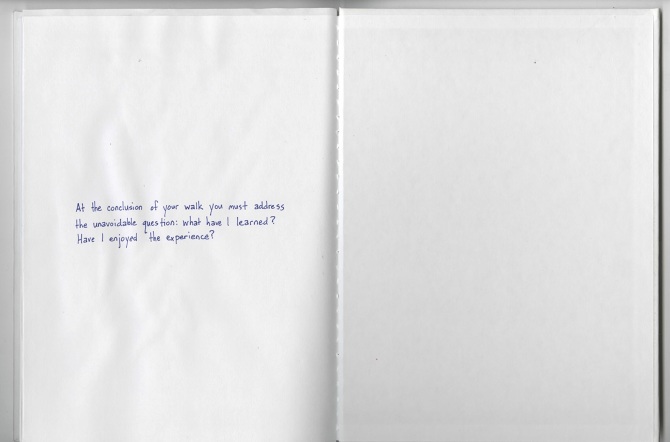 At the conclusion of your walk you must address
the unavoidable question: what have I learned?
Have I enjoyed the experience?